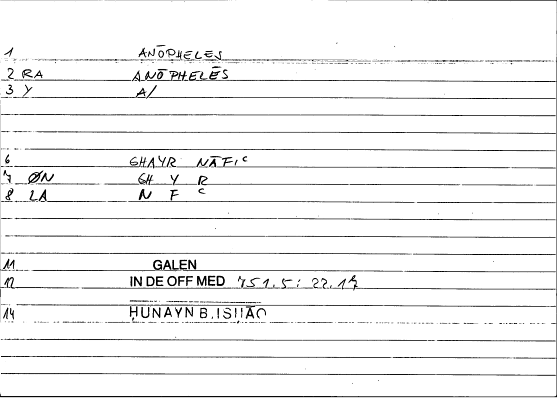 1 ANŌPHELES
2 RA ANŌPHELĒS
3 Y A/
6 GHAYR NĀFIʿ
7 ØN GH Y R
8 LA N F ʿ
11 GALEN
12 IN DE OFF MED 751.5; 22.17
14 ḤUNAYN B. ISḤĀQ